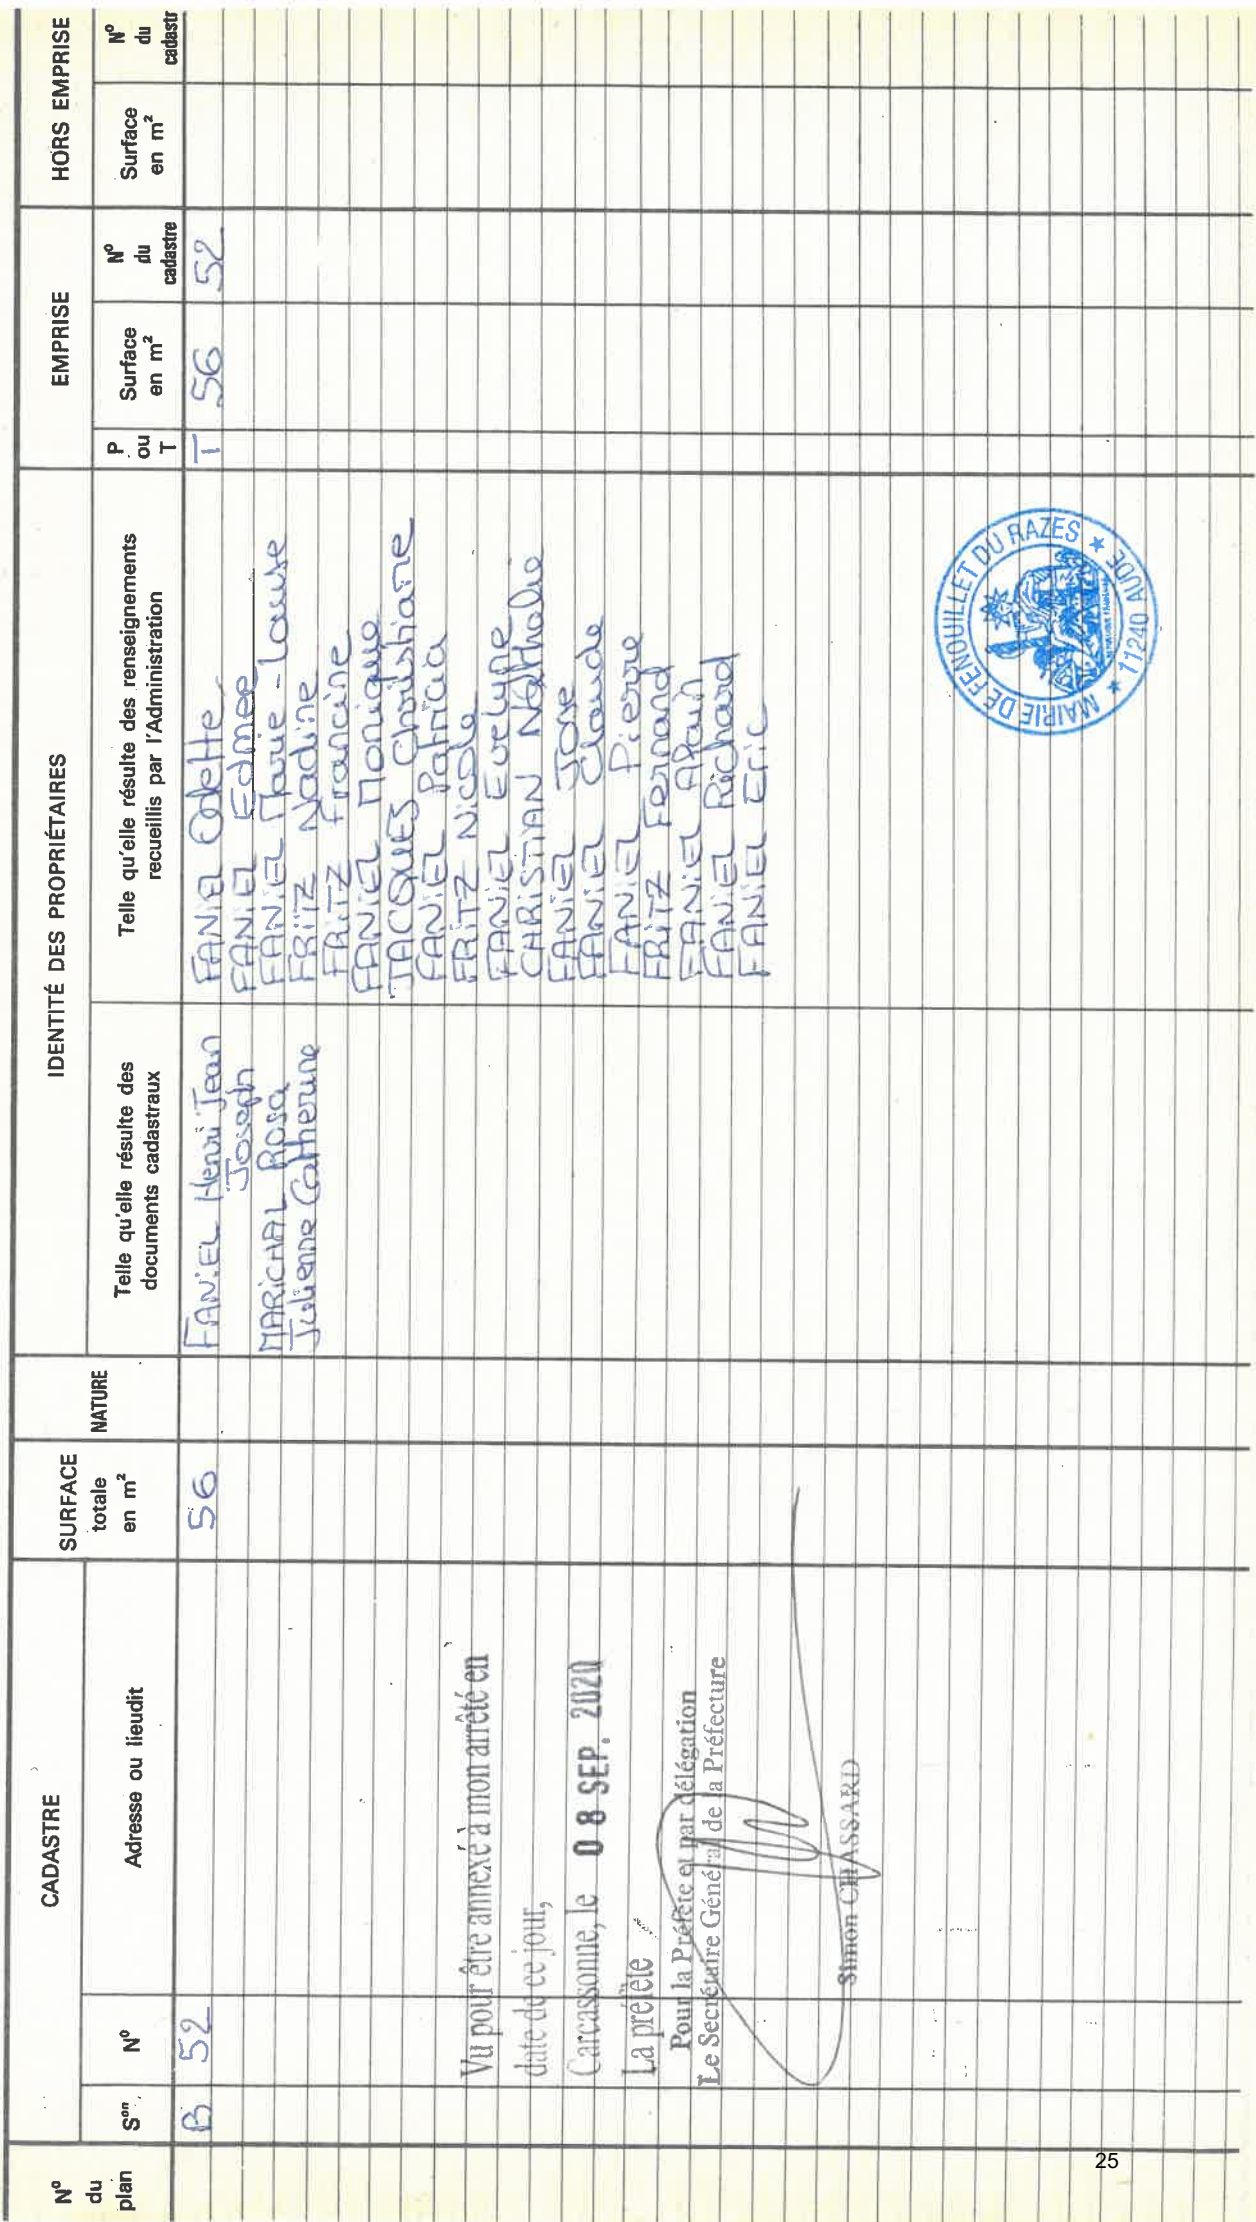 N° du plan
CADASTRE
Son
N°
Adresse ou lieudit
SURFACE totale en m²
NATURE
IDENTITÉ DES PROPRIÉTAIRES
Telle qu'elle résulte des documents cadastraux
Telle qu'elle résulte des renseignements recueillis par l'Administration
EMPRISE
P ou T
Surface en m²
N° du cadastre
HORS EMPRISE
Surface en m²
N° du cadastr
B 52 56
FANIEL Henri Jean
Joseph
MARICHAL Rosa
Julienne Catherine
FANIEL Odette
FANIEL Edmee
FANIEL Marie-Louise
FRITZ Nadine
FRITZ Francine
FANIEL Monique
JACQUES Christiane
FANIEL Patricia
FRITZ Nicole
FANIEL Evelyne
CHRISTIAN Nathalie
FANIEL Jose
FANIEL Claude
FANIEL Pierre
FRITZ Fernand
FANIEL Alain
FANIEL Richard
FANIEL Eric
T 56 52
Vu pour être annexé à mon arrêté en
date de ce jour,
Carcassonne, le 08 SEP. 2020
La préfète
Pour la Préfète et par délégation
Le Secrétaire Général de la Préfecture
Simon CHASSARD
MAIRIE DE FENOUILLET DU RAZES ★ 11240 AUDE ★
25